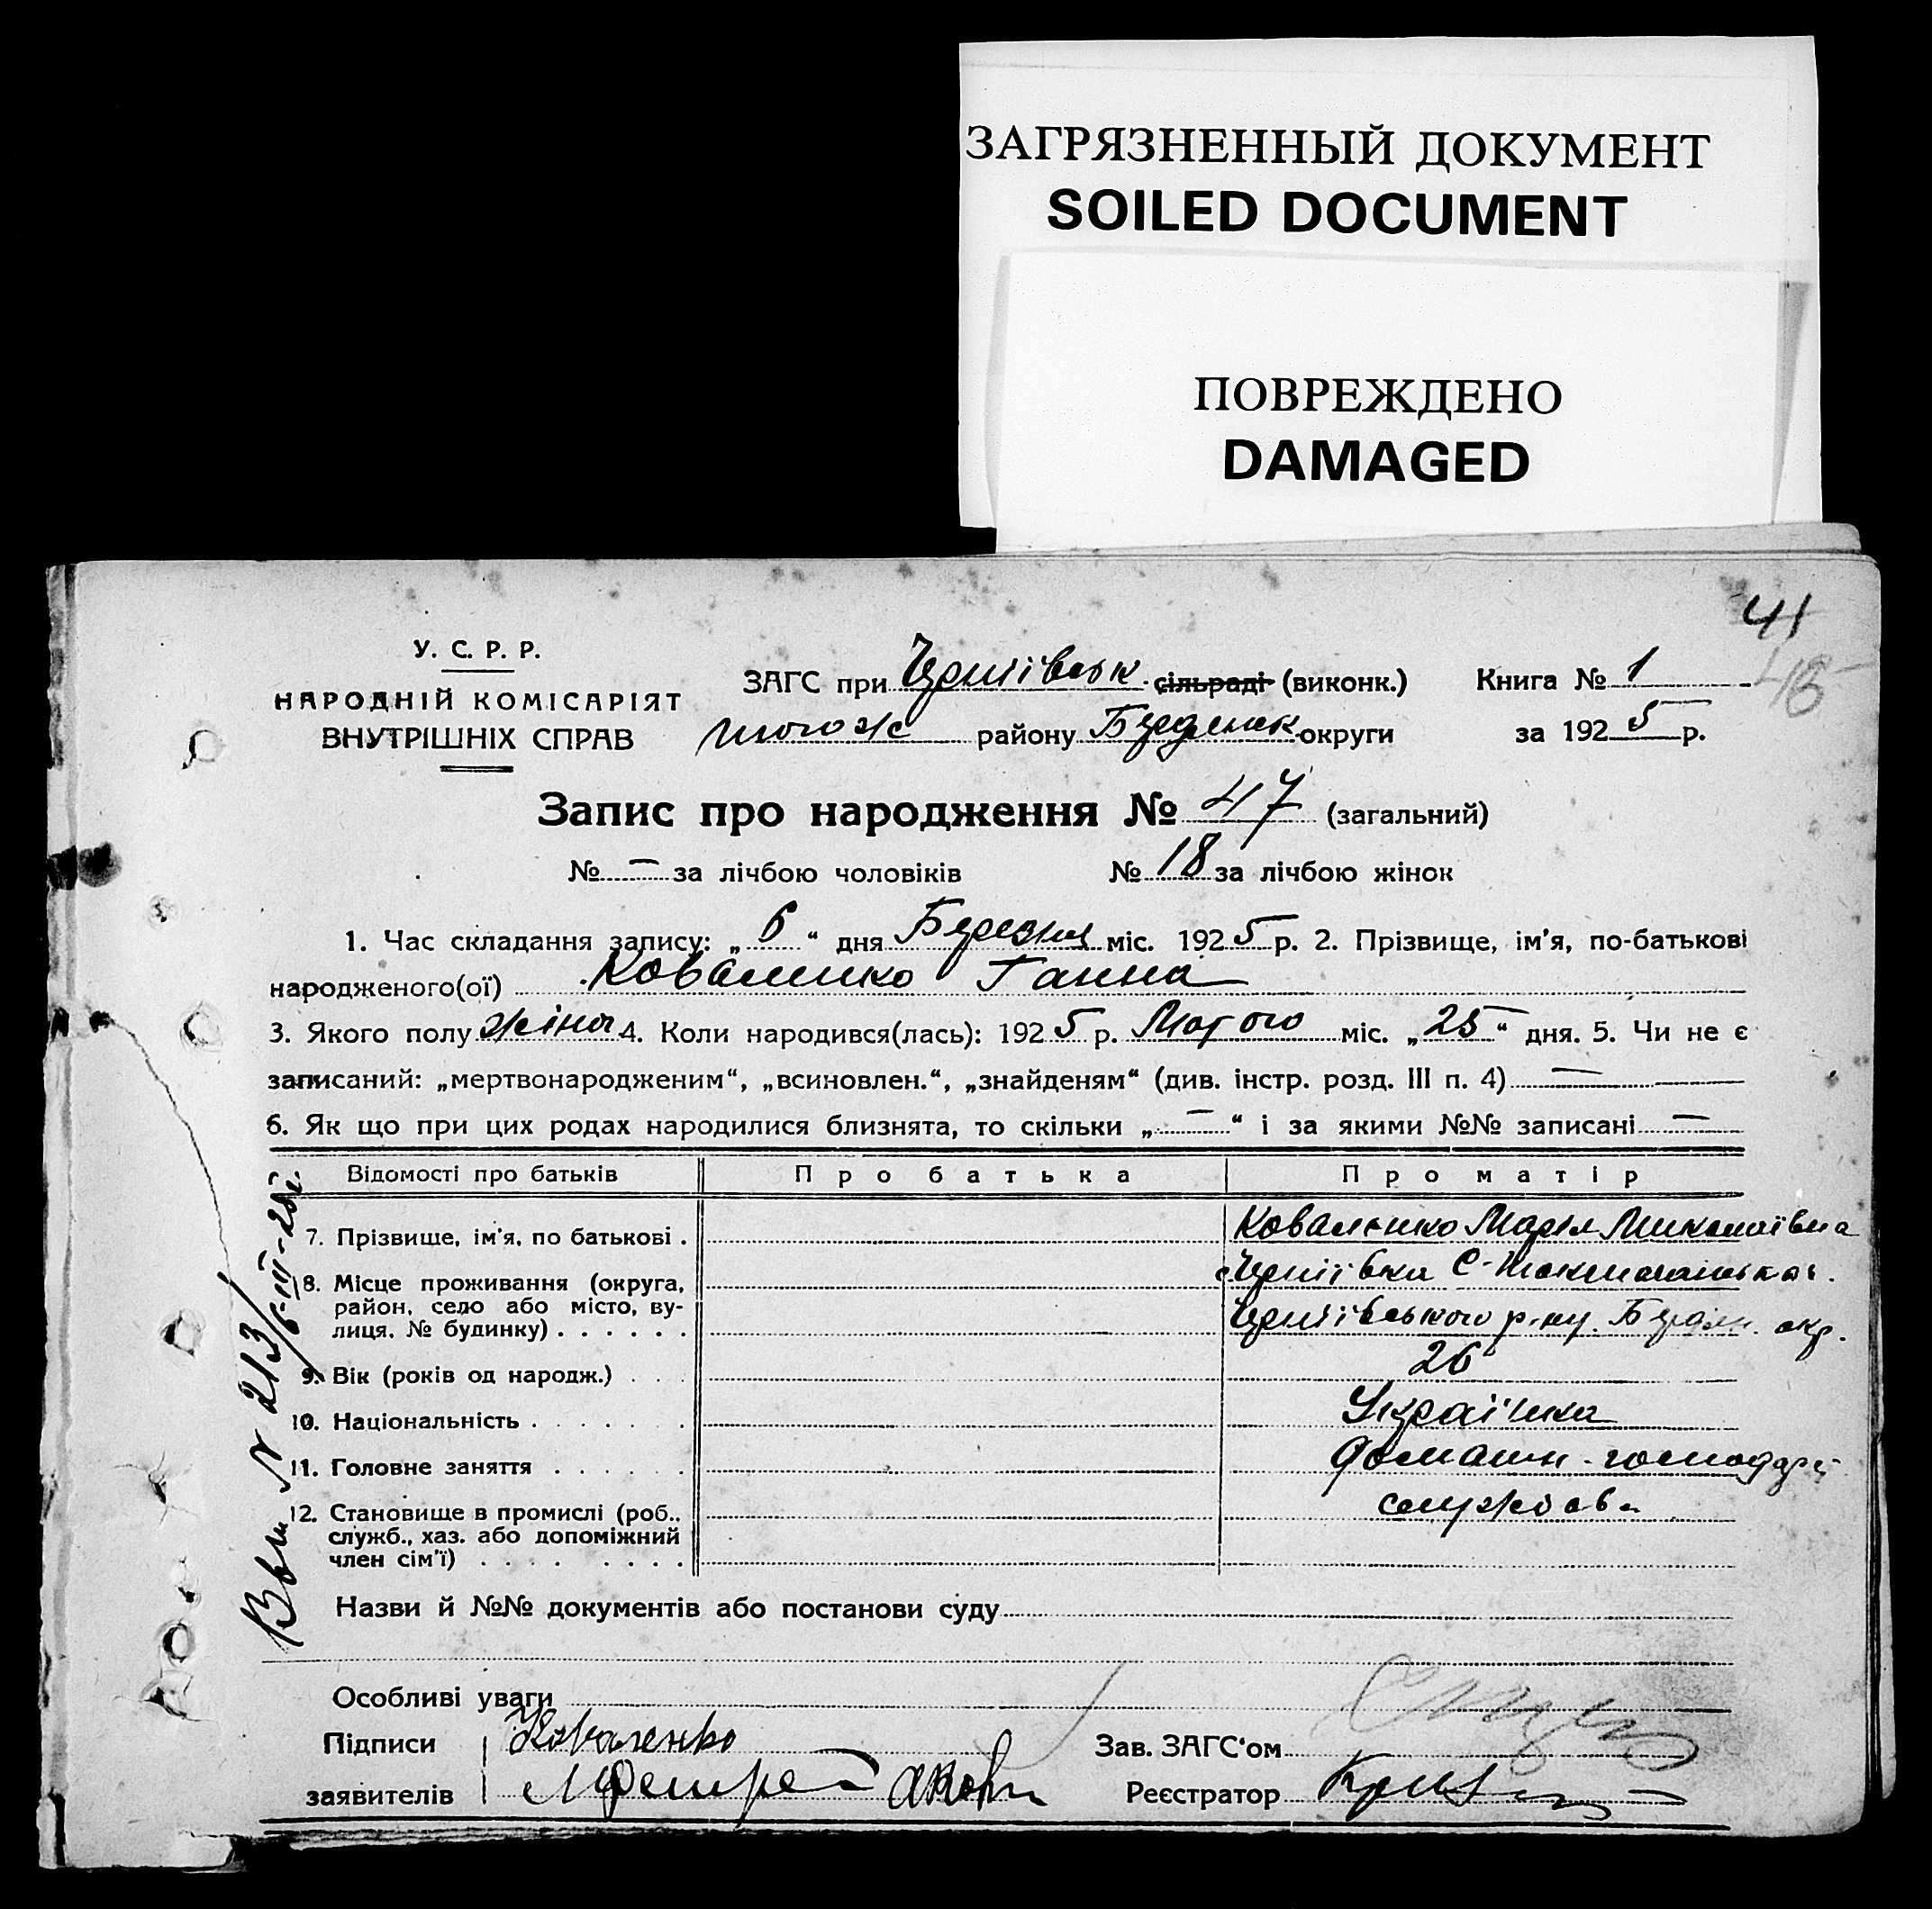 ЗАГРЯЗНЕННЫЙ ДОКУМЕНТ
SOILED DOCUMENT
ПОВРЕЖДЕНО
DAMAGED
41
У. С. Р. Р.
НАРОДНІЙ КОМІСАРІЯТ
ВНУТРІШНІХ СПРАВ
ЗАГС при Черніївськ. сільраді (виконк.) Книга № 1
того ж району Бердянськ округи за 1925 р.
Запис про народження № 47 (загальний)
№ — за лічбою чоловіків № 18 за лічбою жінок
1. Час складання запису: „6“ дня Березня міс. 1925 р. 2. Прізвище, ім'я, по-батькові
народженого(ої) Коваленко Ганна
3. Якого полу жіноч. 4. Коли народився(лась): 1925 р. Лютого міс. „25“ дня. 5. Чи не є
записаний: „мертвонародженим“, „всиновлен.“, „знайденям“ (див. інстр. розд. III п. 4) —
6. Як що при цих родах народилися близнята, то скільки „—“ і за якими №№ записані —
Відомості про батьків Про батька Про матір
7. Прізвище, ім'я, по батькові . Коваленко Марія Миколаївна
8. Місце проживання (округа, Черніївка С-Токмачанська.
район, село або місто, ву-
лиця, № будинку) . . . . . . Черніївського р-ну. Бердян. окр.
9. Вік (років од народж.) . . . 26
10. Національність . . . . . . Українка
11. Головне заняття . . . . . . домашн. господар
12. Становище в промислі (роб.,
служб., хаз. або допоміжний
член сім'ї) . . . . . . . . .
№ 213/6-III-25г.
Назви й №№ документів або постанови суду
Особливі уваги
Підписи Коваленко Зав. ЗАГС'ом
заявителів Реєстратор